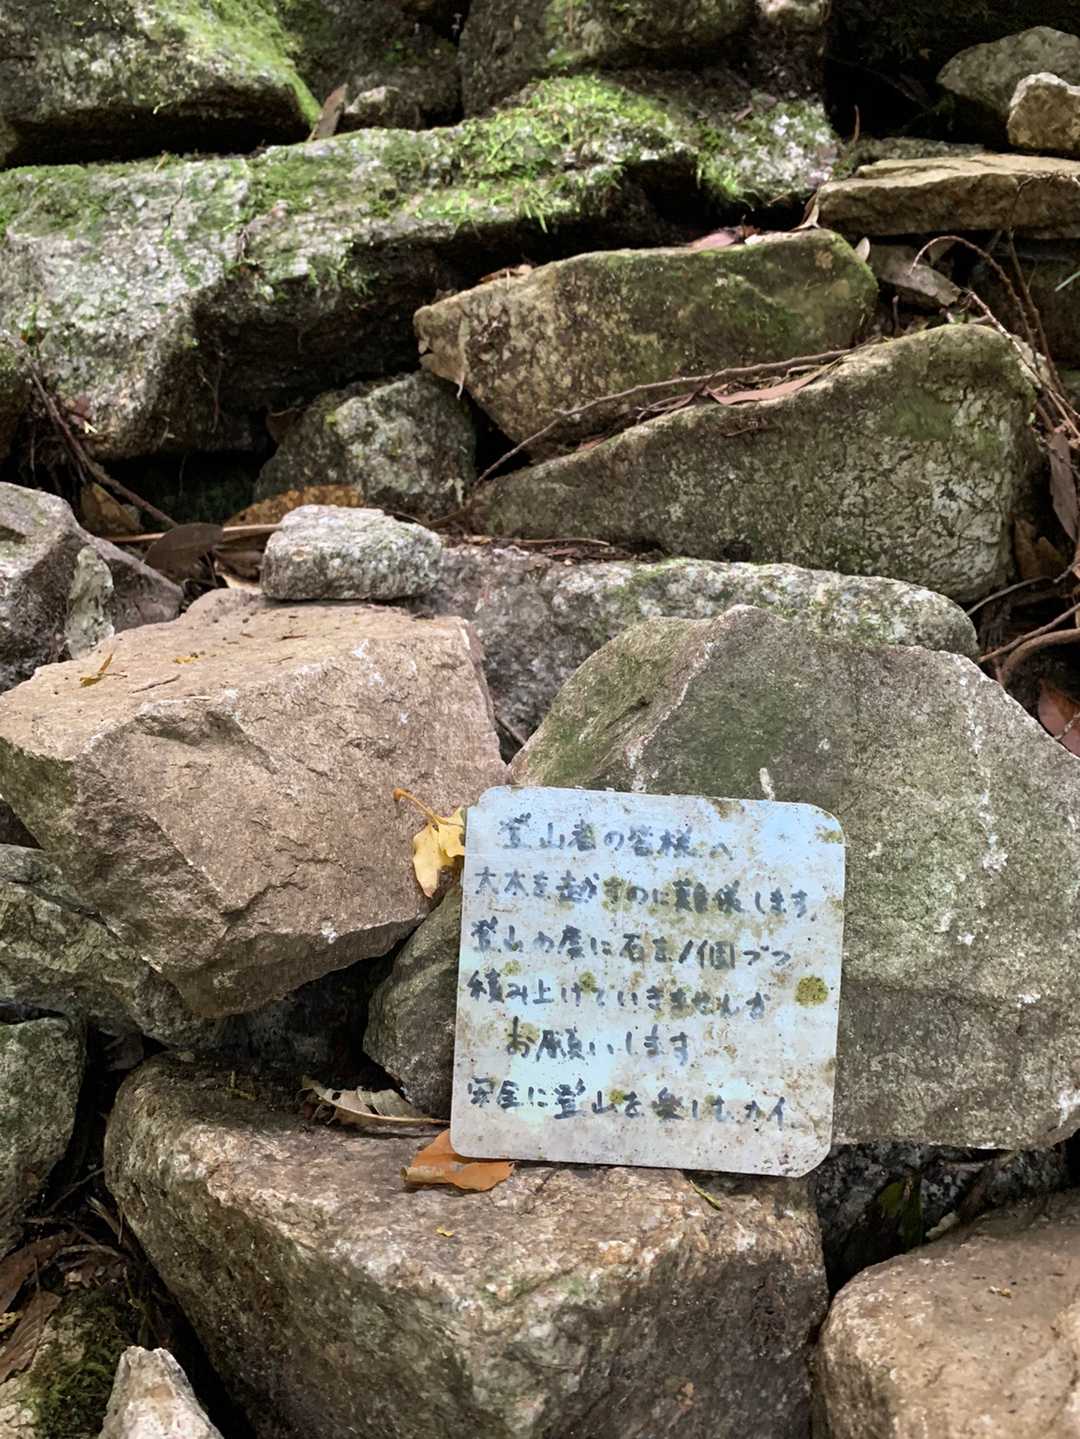 登山者の皆様へ
大木を越すのに難儀します。
登山の度に石を1個づつ
積み上げていきませんか
お願いします
安全に登山を楽しむカイ